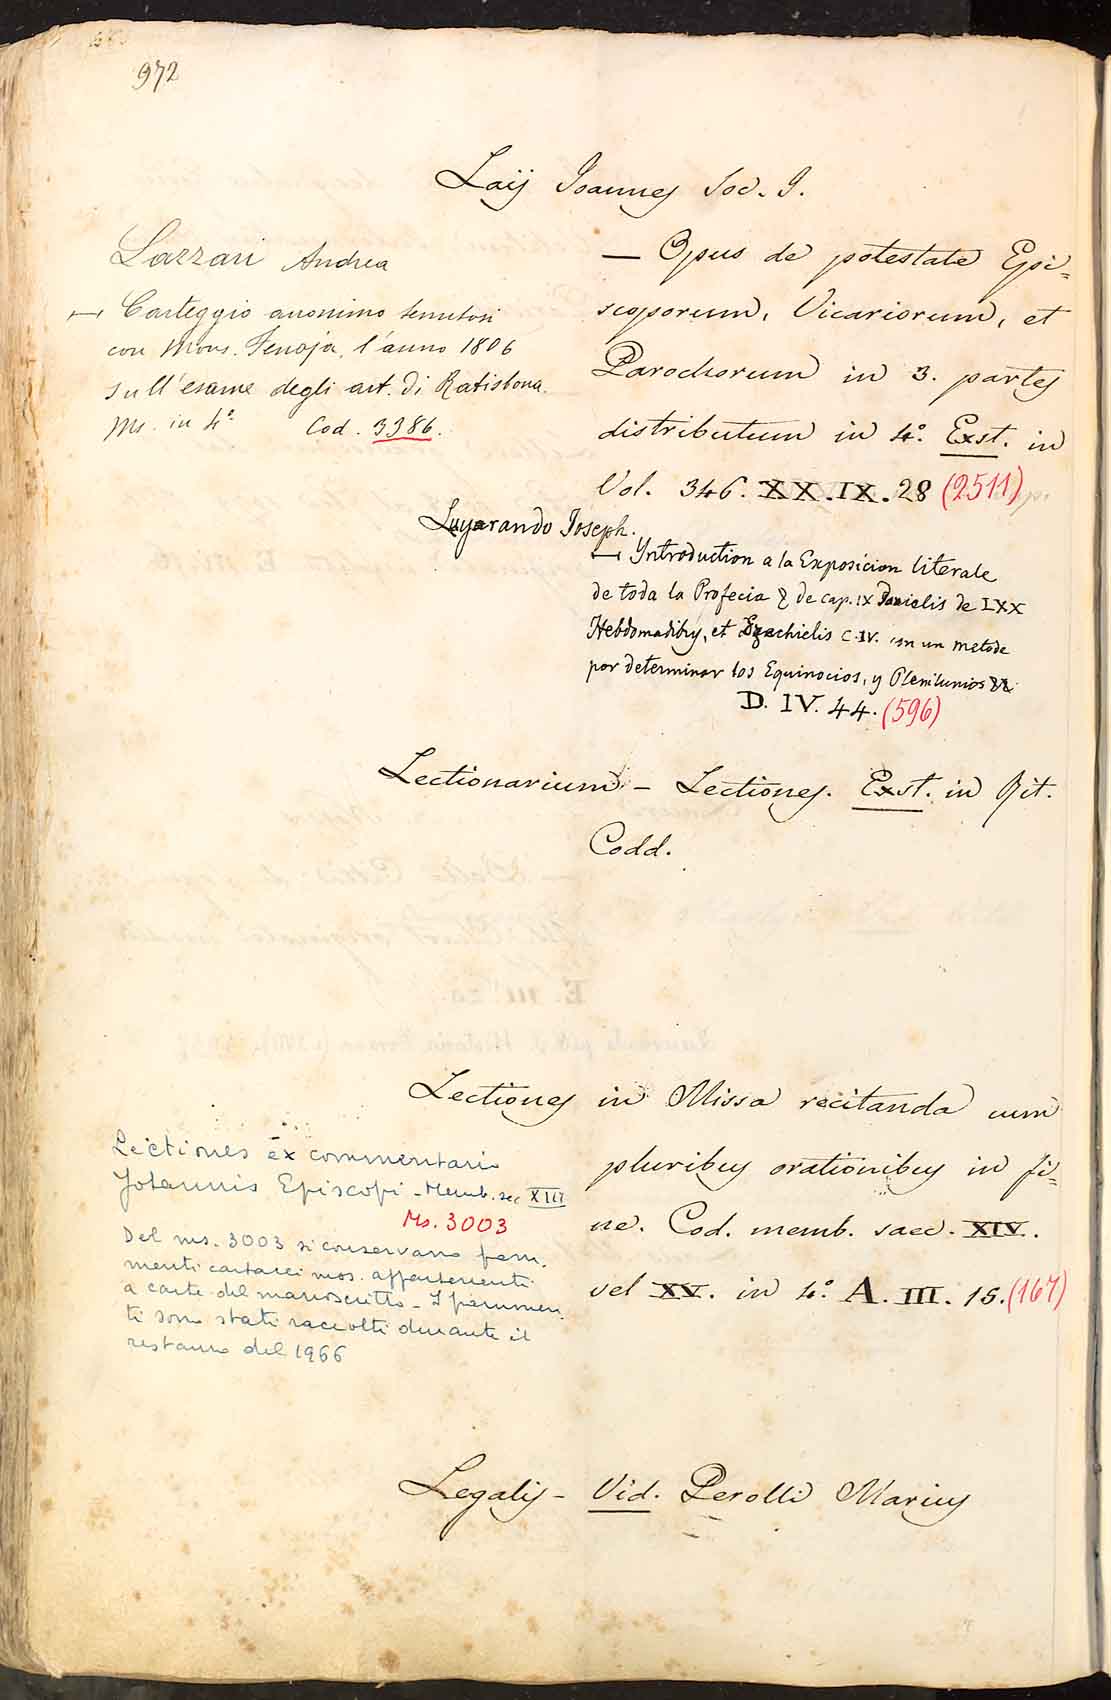 972
Laij Joannes Soc. J.
Lazzari Andrea
— Carteggio anonimo tenutosi
con Mons. Tenoja, l'anno 1806
sull'esame degli art. di Ratisbona.
Ms. in 4.° Cod. 3386.
— Opus de potestate Epi=
scoporum, Vicariorum, et
Parochorum in 3. partes
distributum in 4.° Exst. in
Vol. 346. XX.IX.28 (2511)
Layarando Joseph.
— Yntroduction a la Exposicion literale
de toda la Profecia de cap. IX Danielis de LXX
Hebdomadibus, et Ezechielis C. IV. con un metode
por determinar los Equinocios, y Plenilunios &.
D. IV. 44. (596)
Lectionarium – Lectiones. Exst. in Rit.
Codd.
Lectiones in Missa recitanda cum
pluribus orationibus in fi=
ne. Cod. memb. saec. XIV.
vel XV. in 4.° A. III. 15. (167)
Lectiones ex commentario
Johannis Episcopi – Memb. sec XIII
Ms. 3003
Del ms. 3003 si conservano fram.
menti cartacei mos. appartenenti
a carte del manoscritto – I frammen.
ti sono stati raccolti durante il
restauro del 1966
Legalis – Vid. Perolli Marius